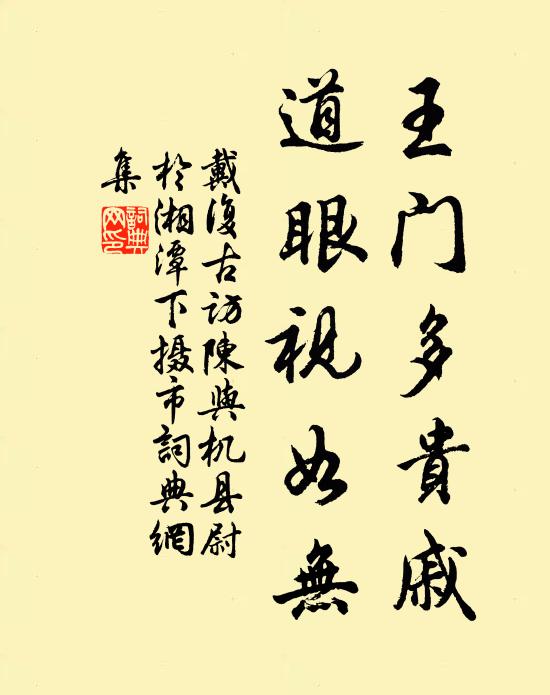 王门多貴戚
道眼視如無
戴復古訪陳與机县尉
於湘潭下摄市詞典網
集
詞典
网印